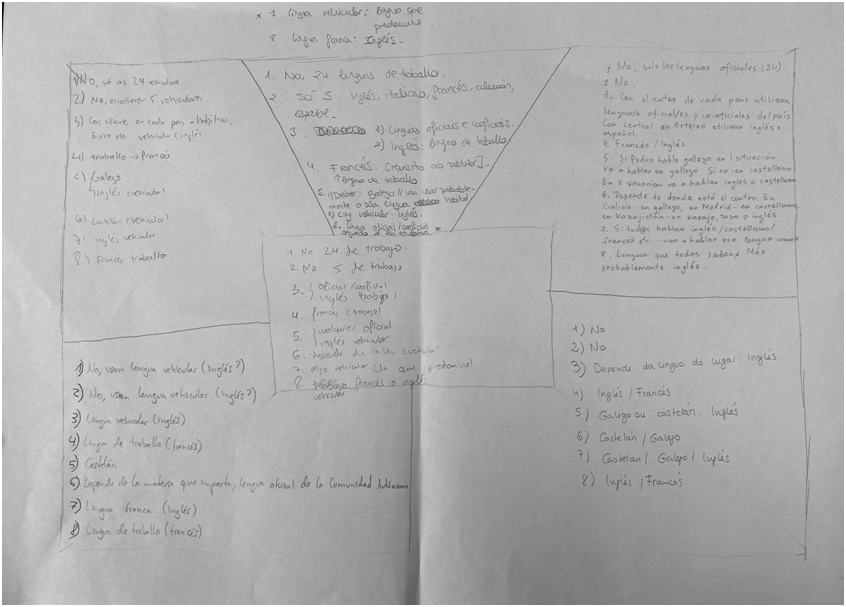 * 1. Lingua vehicular: lingua que
predomine
8. Lingua franca: Inglés.
1) No, só as 24 vehiculares
2) No, escolleron 5 vehiculares
3) Cos cliente en cada país a habitual.
Entre eles vehicular (inglés
4) traballo → francés
Galego
Inglés (vehicular)
6) Castelán (vehicular)
7) Inglés vehicular
8) Francés traballo
1. No, 24 linguas de traballo.
2. Só 5 inglés, italiano, francés, alemán,
español.
3. 1) Linguas oficiais e cooficiais.
2) Inglés: lingua de traballo
4. Francés.
lingua de traballo
5. 1) Deber: galego // vai usar probable-
mente a súa lingua habitual
2) Ling vehicular: Inglés.
6. Lingua oficial/cooficial
*
1. No, solo las lenguas oficiales (24)
2. No.
3. Con clientes de cada país utilizan
lengua/s oficial/es y co-oficiales del país
Con central en Arteixo utilizan inglés o
español.
4. Francés / Inglés
5. Si Pedro habla gallego en 1 situación
va a hablar en gallego. Si no en castellano.
En 2 situación va a hablar inglés o castellano
6. Depende de donde está el centro. En
Galicia - en gallego, en Madrid - en castellano,
en Kazajistán - en kazajo, ruso o inglés.
7. Si todos hablan inglés/castellano/
francés etc. - van a hablar esa lengua común
8. Lengua que todos saben. Más
probablemente inglés.
1. No 24 de trabajo.
2. No. 5 de trabajo
3. oficial/cooficial
inglés trabajo
4. francés (trabajo)
5. cualquier oficial
inglés vehicular
6. depende de la ley (vehicular)
7. algo vehicular (la que predomine)
8. francés o inglés
vehicular
1) No, usan lengua vehicular (inglés?)
2) No, usan lengua vehicular (inglés?)
3) Lingua vehicular (inglés)
4) Lingua de traballo (francés)
5) Castelán
6) Depende de la materia que imparta, lengua oficial de la Comunidad Autónoma
7) Lingua franca (inglés)
8) Lingua de traballo (francés)
1) No
2) No
3) Depende da lingua do lugar. Inglés
4) Inglés / Francés
5) Galego ou castelán. Inglés
6) Castelán / Galego
7) Castelan / Galego / Inglés
8) Inglés / Francés